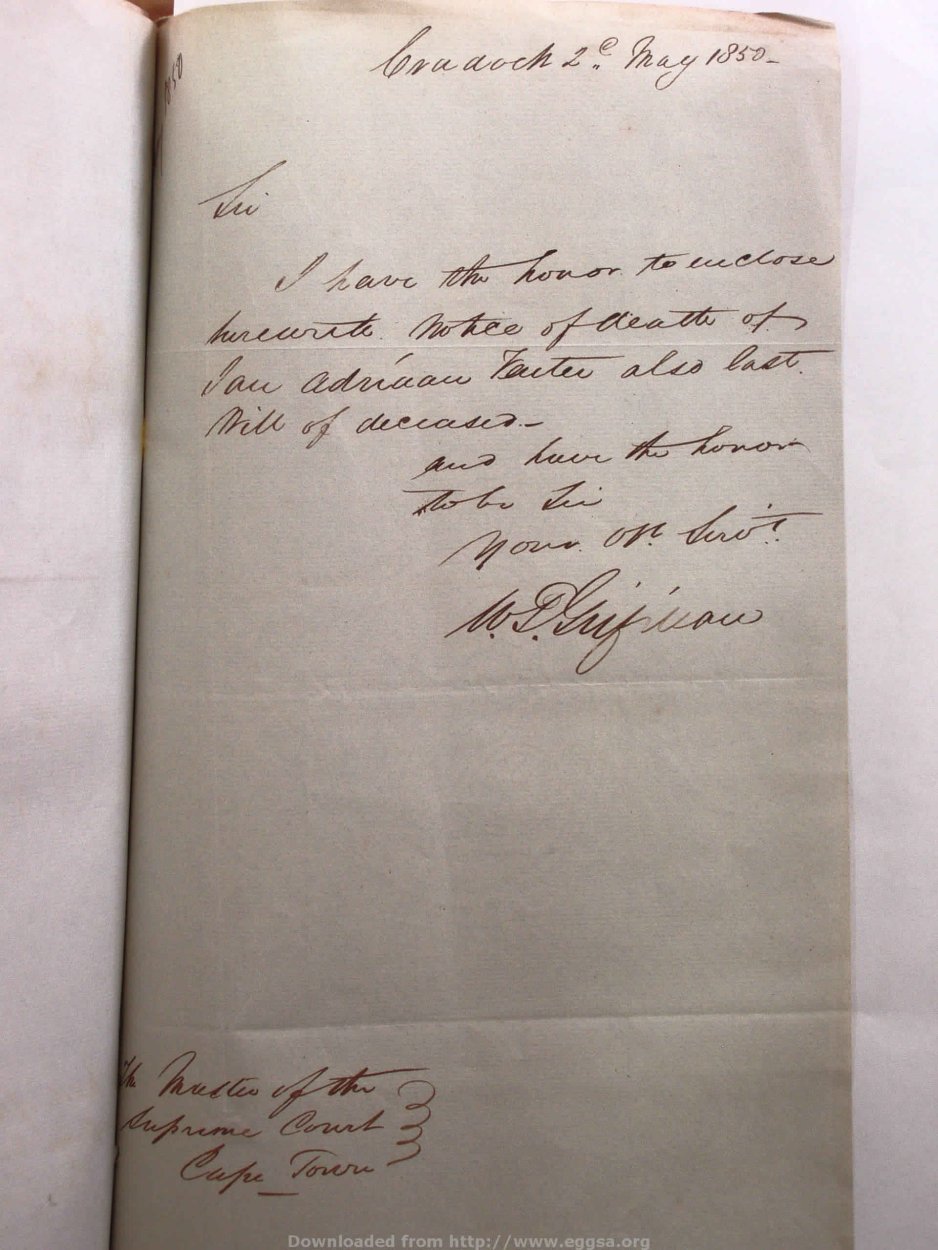 1850
Cradock 2d May 1850-
Sir
I have the honor to enclose
herewith Notice of death of
Jan Adriaan Venter also last
Will of deceased-
and have the honor
to be Sir
Your Obt. Servt.
W. P.
The Master of the
Supreme Court
Cape Town
Downloaded from http://www.eggsa.org